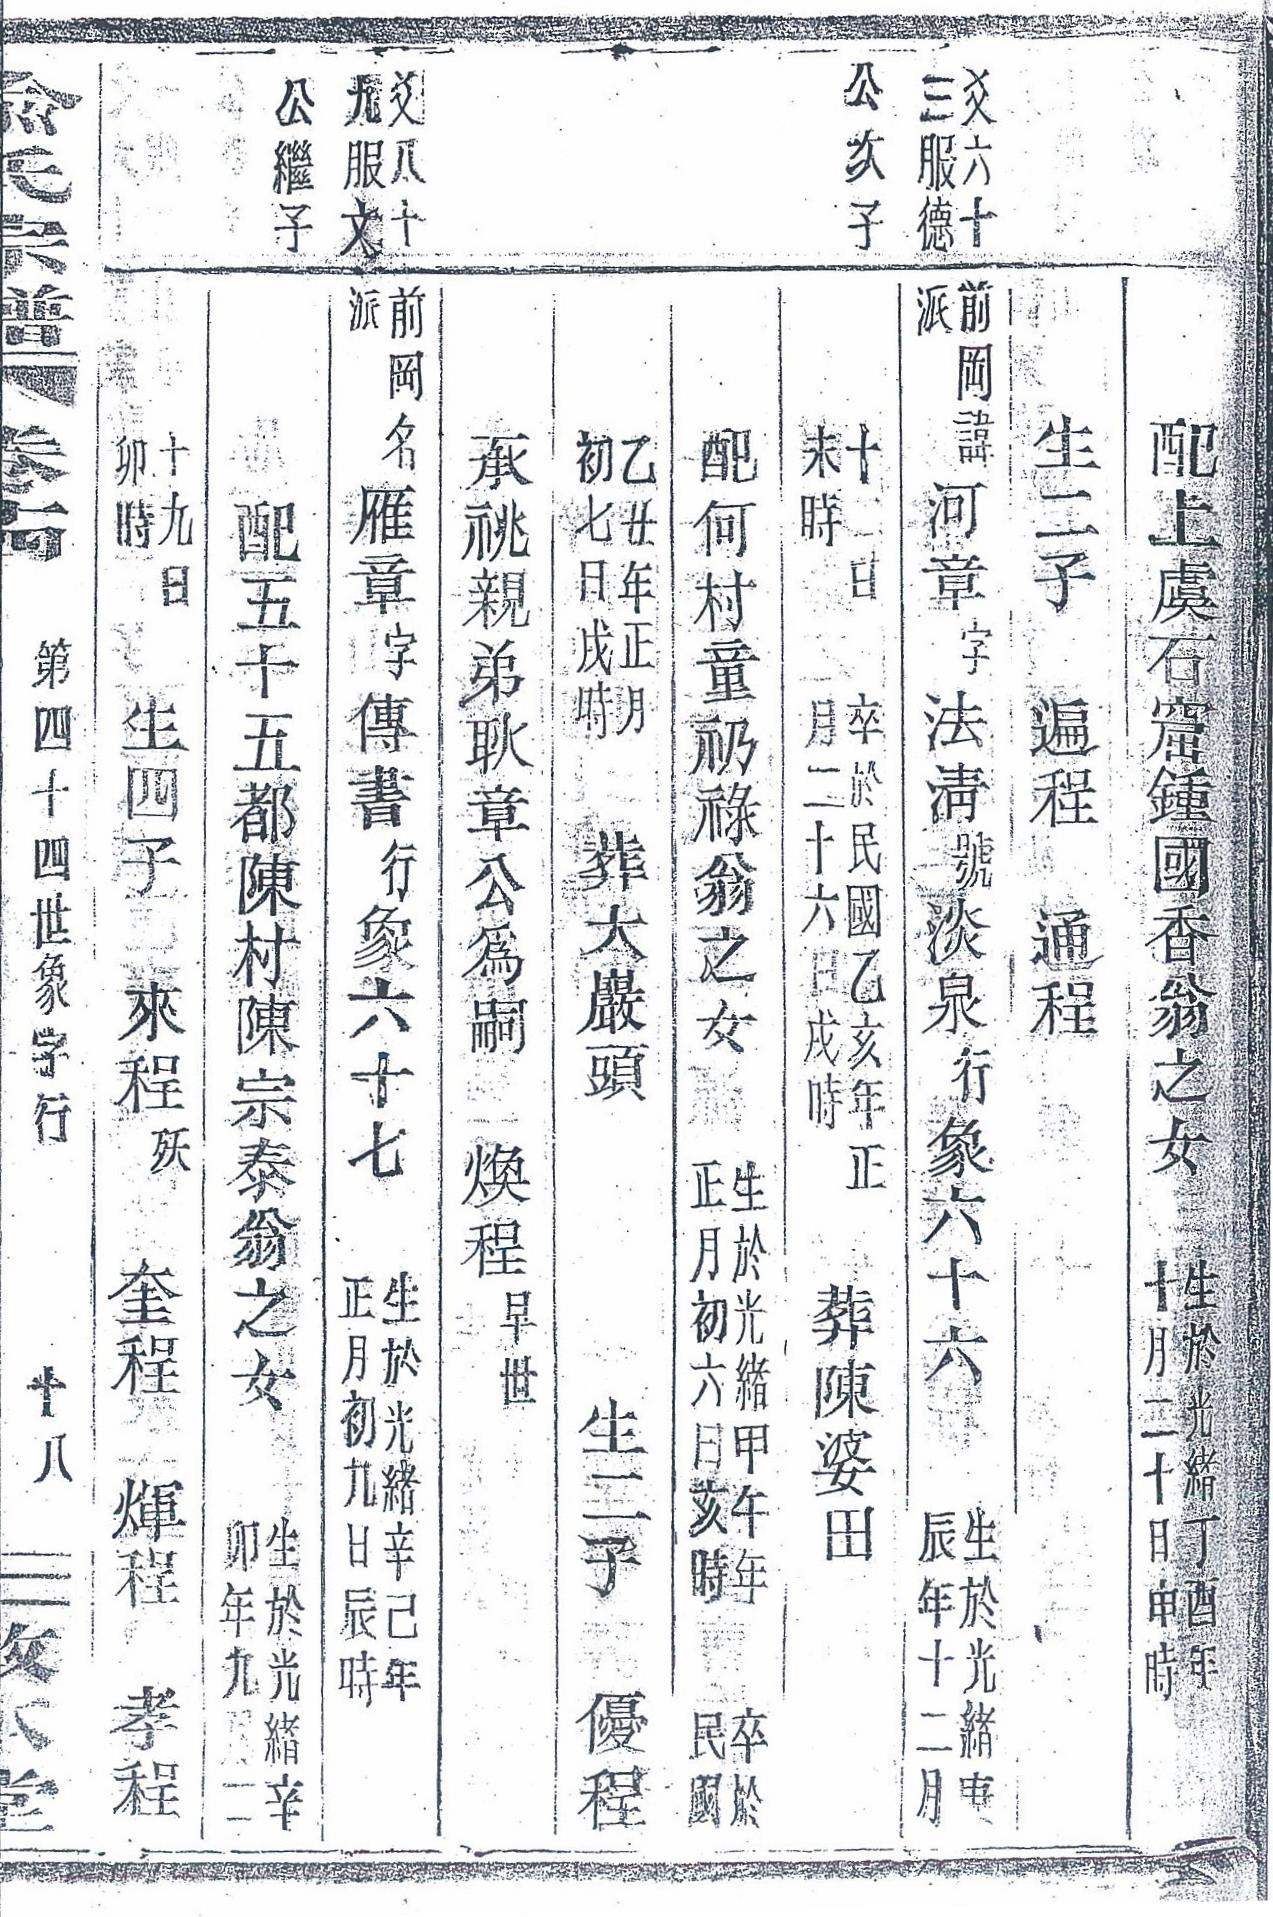 配上虞石窟鍾國香翁之女 生於光緒丁酉年十月二十日申時
生二子 遍程 通程
爻六十三服德
公次子
前岡派 諱河章 字法淸 號淡泉 行象六十六 生於光緒庚辰年十二月
十二日未時 卒於民國乙亥年正月二十六日戌時 葬陳婆田
配何村童礽祿翁之女 生於光緒甲午年正月初六日亥時 卒於民國
乙丑年正月初七日戌時 葬大巖頭 生二子 優程
承祧親弟耿章公爲嗣 煥程 早世
爻八十九服文
公繼子
前岡派 名雁章 字傳書 行象六十七 生於光緒辛巳年正月初九日辰時
配五十五都陳村陳宗泰翁之女 生於光緒辛卯年九月二
十九日卯時 生四子 來程 殀 奎程 煇程 孝程
俞氏宗譜 卷 第四十四世象字行 十八 堂